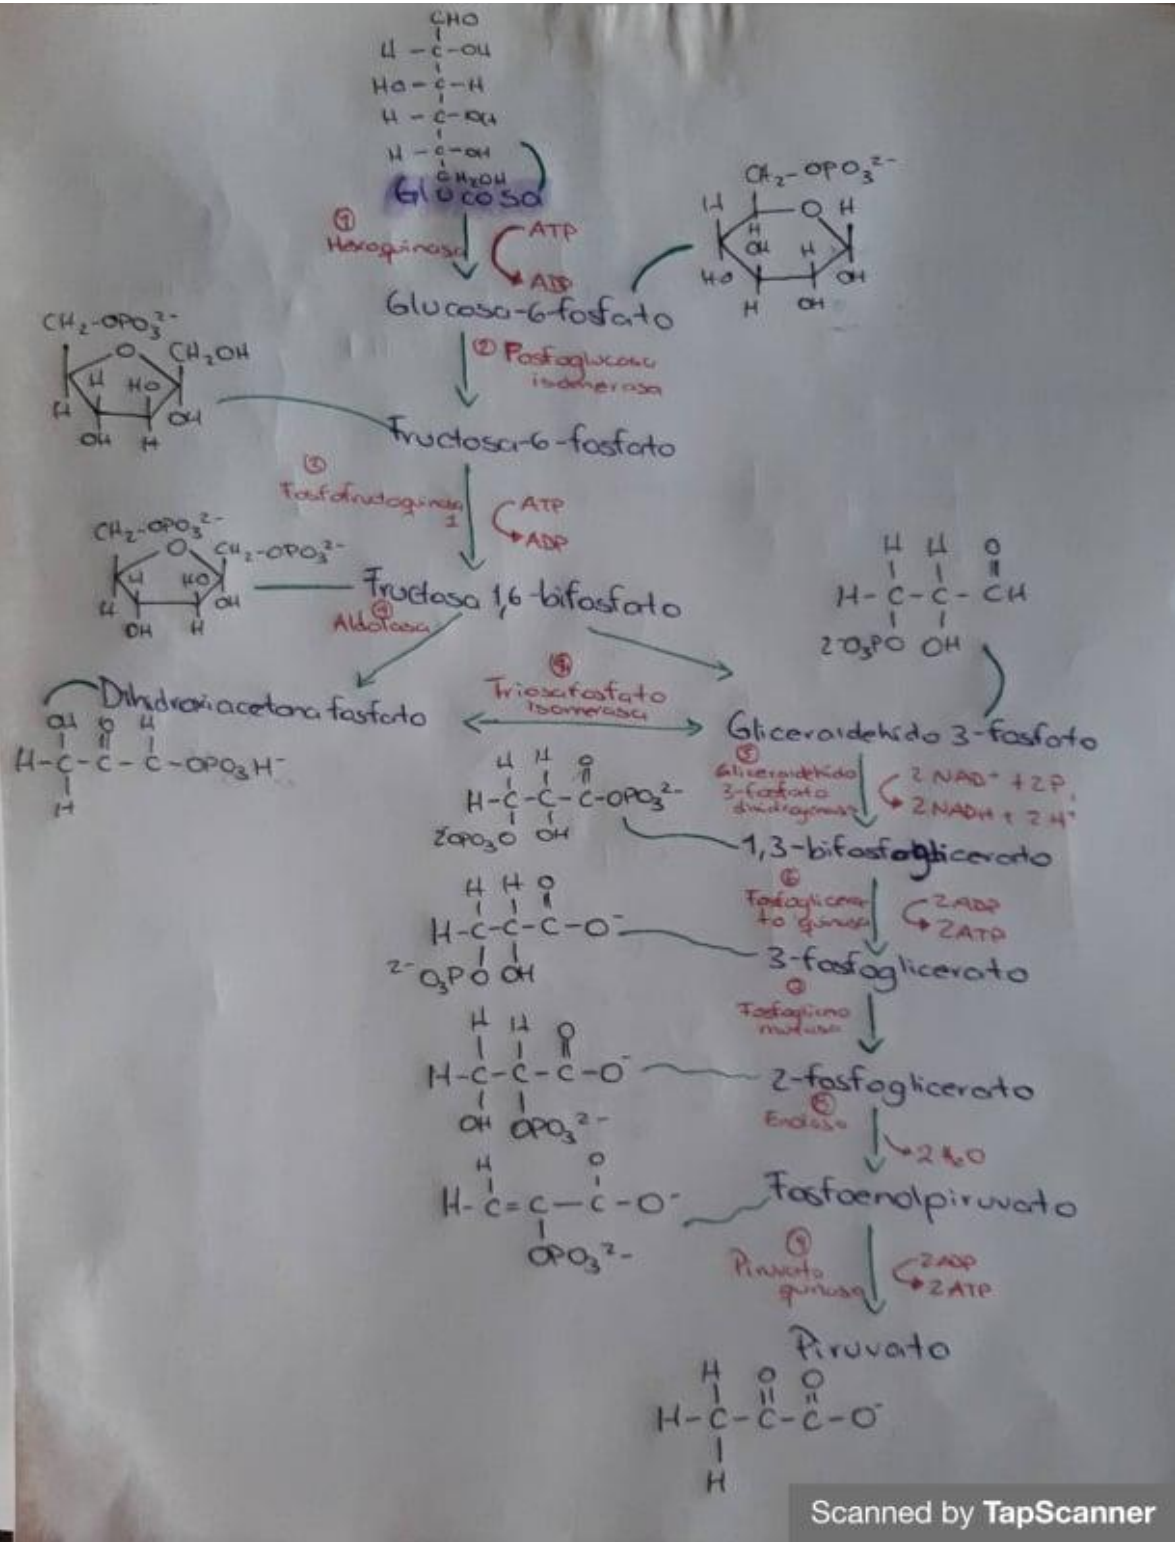 CHO
H - C - OH
HO - C - H
H - C - OH
H - C - OH
CH2OH
Glucosa
① Hexoquinasa
ATP
ADP
CH2-OPO3 2-
H O H
H
OH H
HO OH
H OH
Glucosa-6-fosfato
② Fosfoglucosa
isomerasa
CH2-OPO3 2-
O CH2OH
H HO
H OH
OH H
Fructosa-6-fosfato
③
Fosfofructoquinasa
1
ATP
ADP
CH2-OPO3 2-
O CH2-OPO3 2-
H HO
H OH
OH H
Fructosa 1,6-bifosfato
④
Aldolasa
H H O
H - C - C - CH
2-O3PO OH
Triosafosfato
isomerasa
Dihidroxiacetona fosfato
OH O H
H - C - C - C - OPO3H-
H
Gliceraldehido 3-fosfato
⑤
Gliceraldehido
3-fosfato
2 NAD+ + 2P
2 NADH + 2 H+
H H O
H - C - C - C - OPO3 2-
2-OPO3O OH
1,3-bifosfoglicerato
⑥
Fosfoglicera-
to quinasa
2ADP
2ATP
H H O
H - C - C - C - O-
2-O3PO OH
3-fosfoglicerato
Fosfoglicero
mutasa
H H O
H - C - C - C - O-
OH OPO3 2-
2-fosfoglicerato
2 H2O
H O
H - C = C - C - O-
OPO3 2-
Fosfoenolpiruvato
⑨
Piruvato
quinasa
2ADP
2ATP
Piruvato
H O O
H - C - C - C - O-
H
Scanned by TapScanner